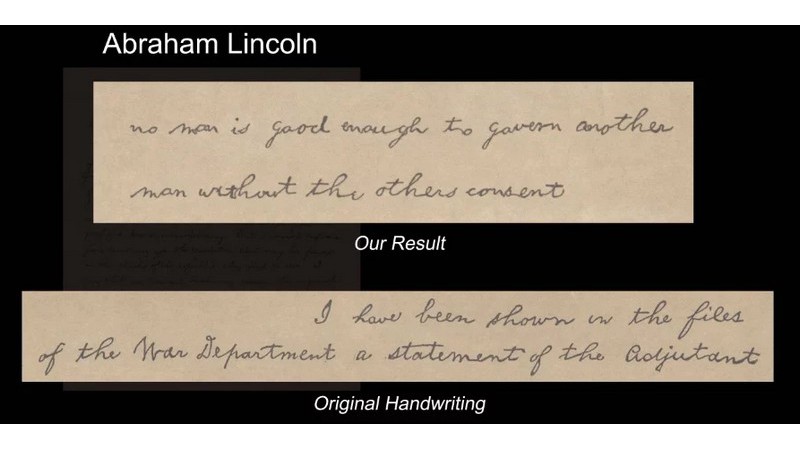 Abraham Lincoln
no man is good enough to govern another
man without the others consent
Our Result
I have been shown in the files
of the War Department a statement of the Adjutant
Original Handwriting